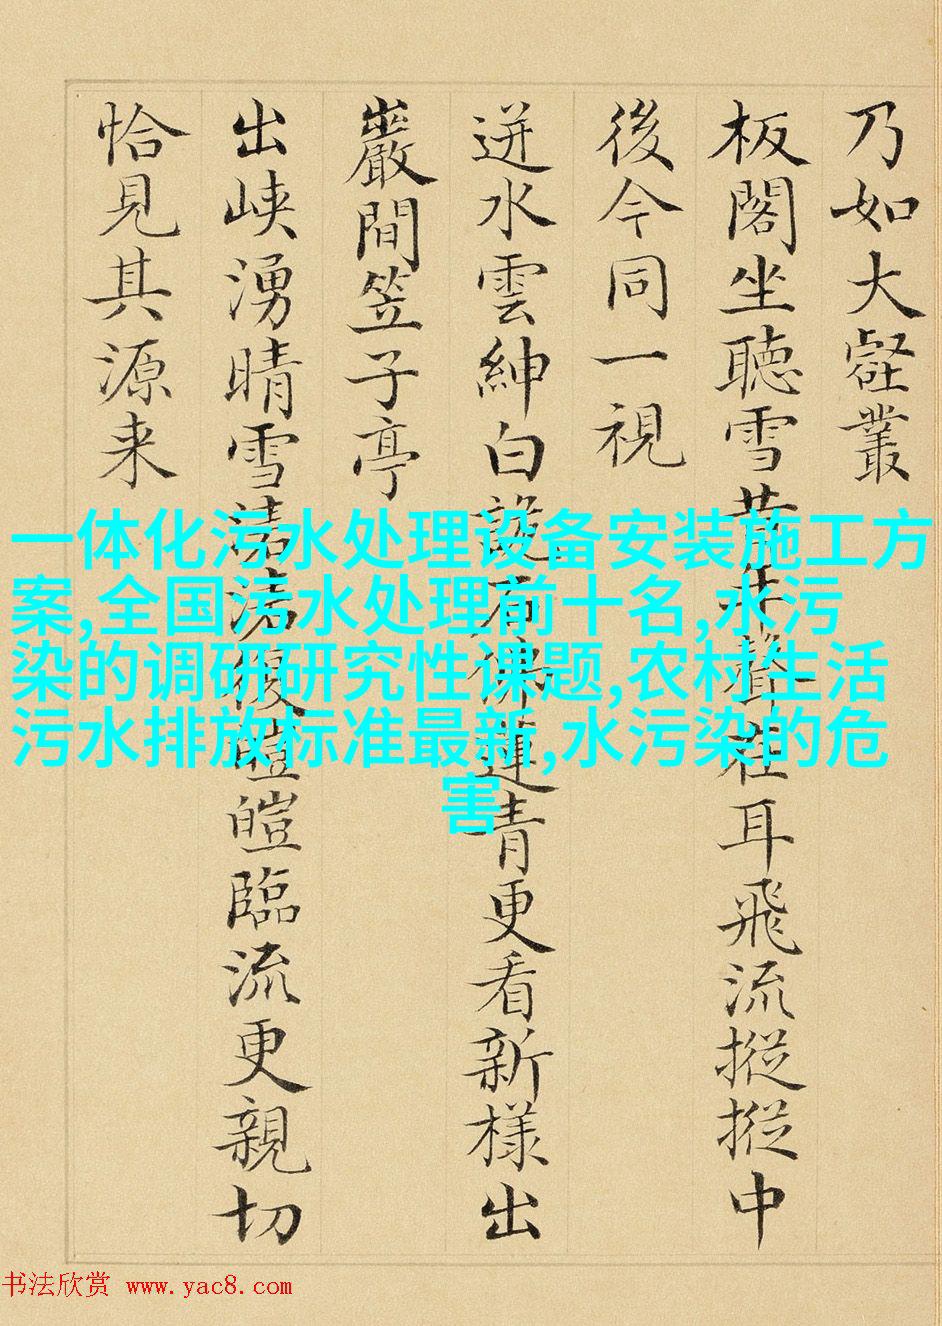 乃如大壑叢
板閣坐聽雪昔年聲在耳飛流摐摐中
後今同一視
迸水雲紳白石蓮青更看新樣出
巖間笠子亭
出峽湧晴雪復皚皚臨流更親切
恰見其源来
一体化污水处理设备安装施工方
案,全国污水处理前十名,水污
染的调研研究性课题,农村生活
污水排放标准最新,水污染的危
害
书法欣赏 www.yac8.com